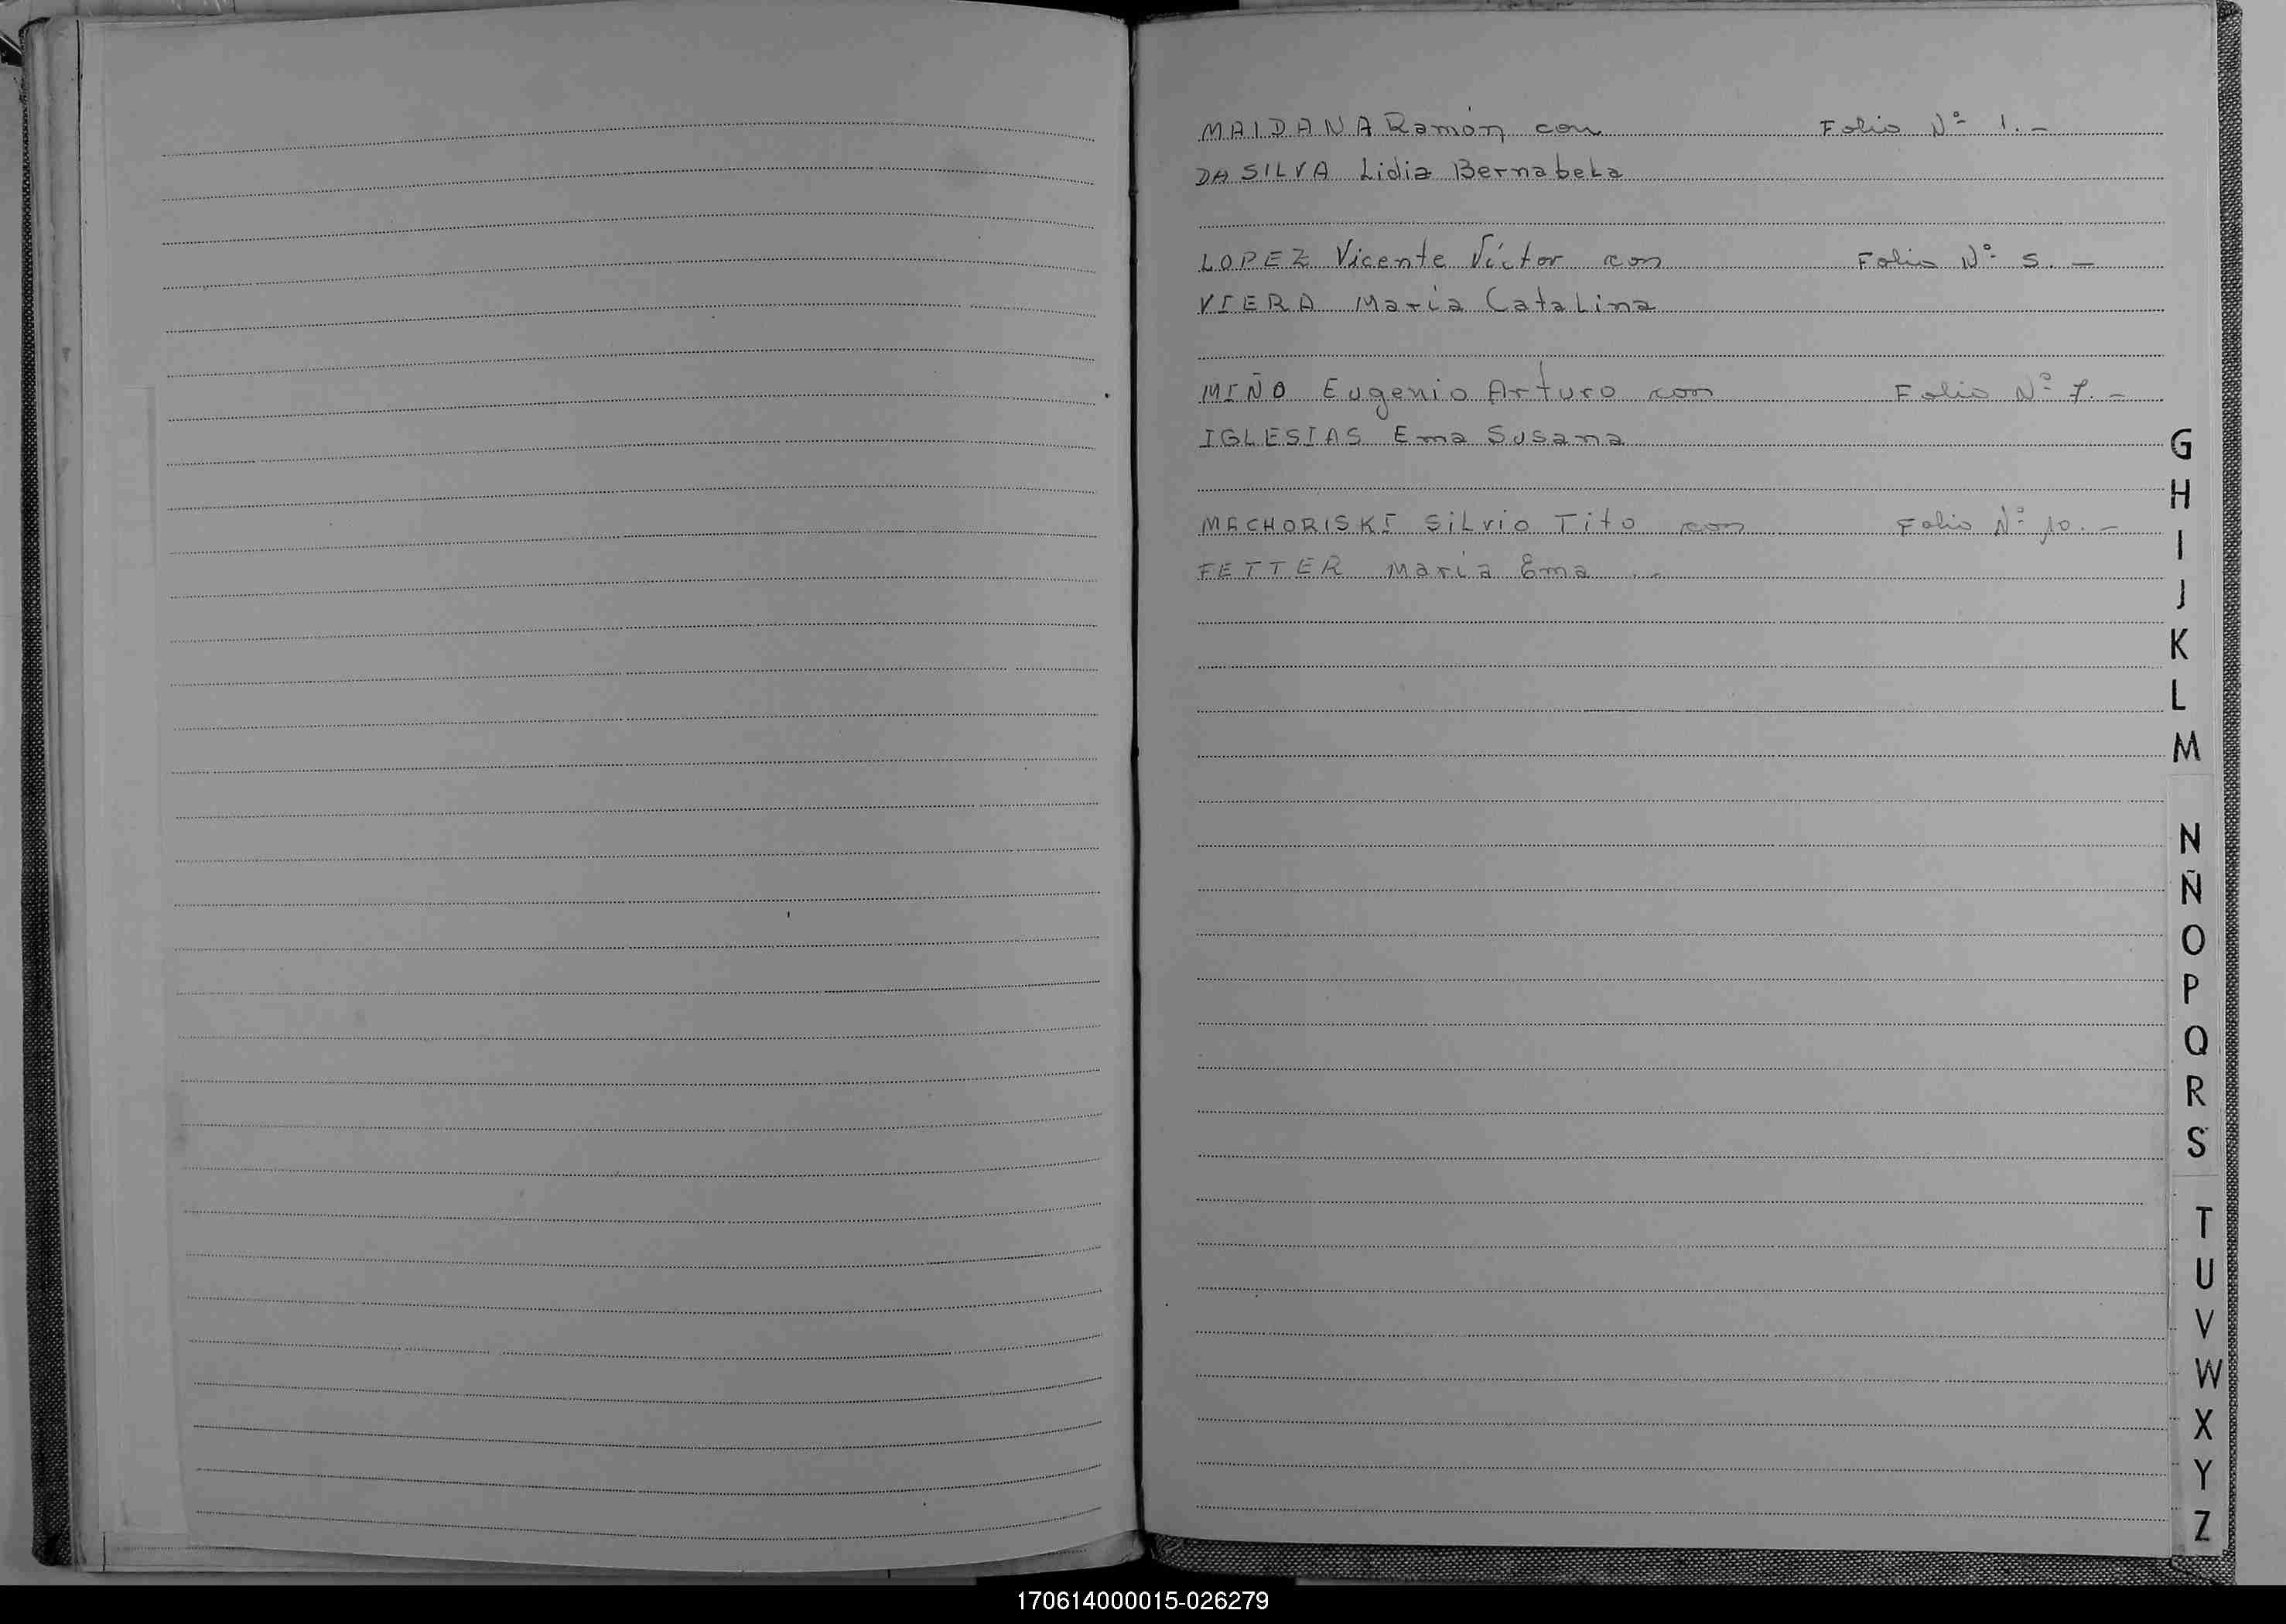 MAIDANA Ramón con Folio Nº 1.-
DA SILVA Lidia Bernabela
LOPEZ Vicente Víctor con Folio Nº 5.-
VIERA María Catalina
MIÑO Eugenio Arturo con Folio Nº 7.-
IGLESIAS Ema Susana
MACHORISKI Silvio Tito con Folio Nº 10.-
FETTER María Ema ..
G
H
I
J
K
L
M
N
Ñ
O
P
Q
R
S
T
U
V
W
X
Y
Z
170614000015-026279